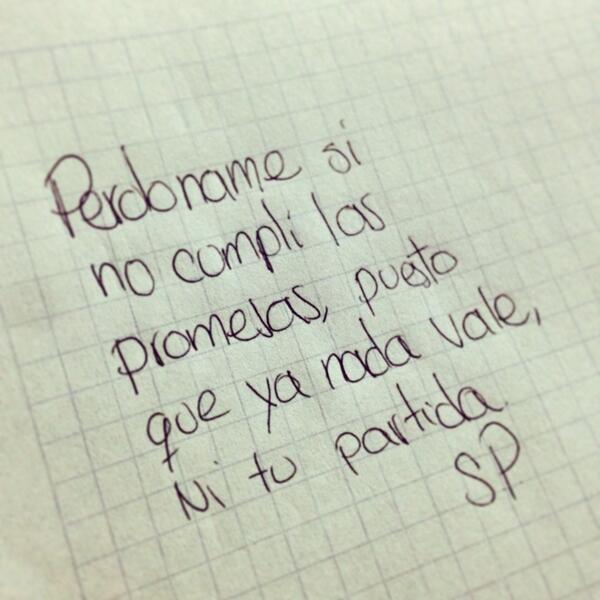 Perdoname si
no cumpli las
promesas, puesto
que ya nada vale,
Ni tu partida.
SP